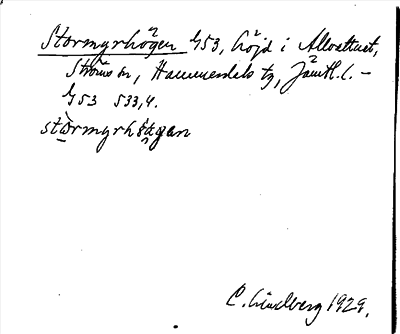 Stormyrhögen G53, höjd i Allvattnet,
Ströms sn, Hammerdals tg, Jämtl. l. –
G53 533,4.
stormyrhögen
C. Lindberg 1929.